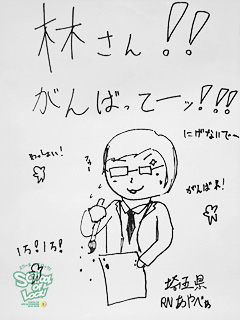 林さん!!
がんばってーッ!!!
にげないでー
わっしょい!
がんばれ!
いち!いち!
SCHOOL OF LOCK!
埼玉県
RN あやぺぇ